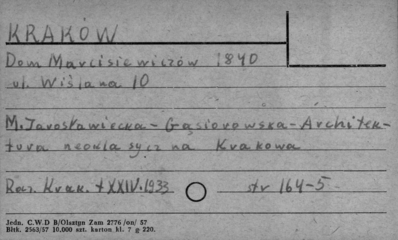 KRAKÓW
Dom Marcisiewiczów 1840
ul. Wiślana 10
M. Jarosławiecka - Gąsiorowska - Architek-
tura neoklasycz na Krakowa
Roz. Krak. t XXIV. 1933 str 164-5.
Jedn. C.W.D B/Olsztyn Zam 2776 /on/ 57
Bltk. 2563/57 10.000 szt. karton kl. 7 g 220.